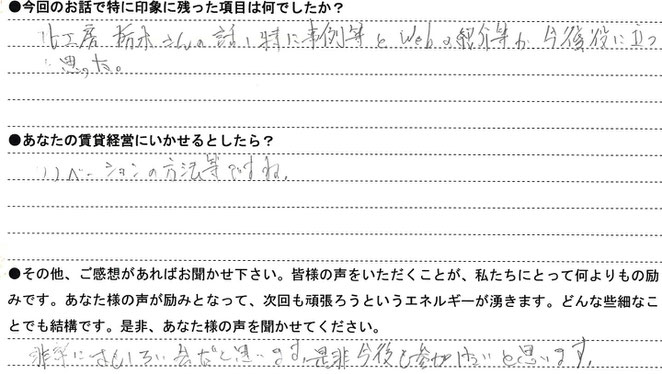 ●今回のお話で特に印象に残った項目は何でしたか？
工房 栃木さんの話、特に事例等とWebの紹介等が今後役に立つ
思った。
●あなたの賃貸経営にいかせるとしたら？
リノベーションの方法等ですね。
●その他、ご感想があればお聞かせ下さい。皆様の声をいただくことが、私たちにとって何よりもの励
みです。あなた様の声が励みとなって、次回も頑張ろうというエネルギーが湧きます。どんな些細なこ
とでも結構です。是非、あなた様の声を聞かせてください。
非常におもしろい会だと思います。是非今後も参加したいと思います。